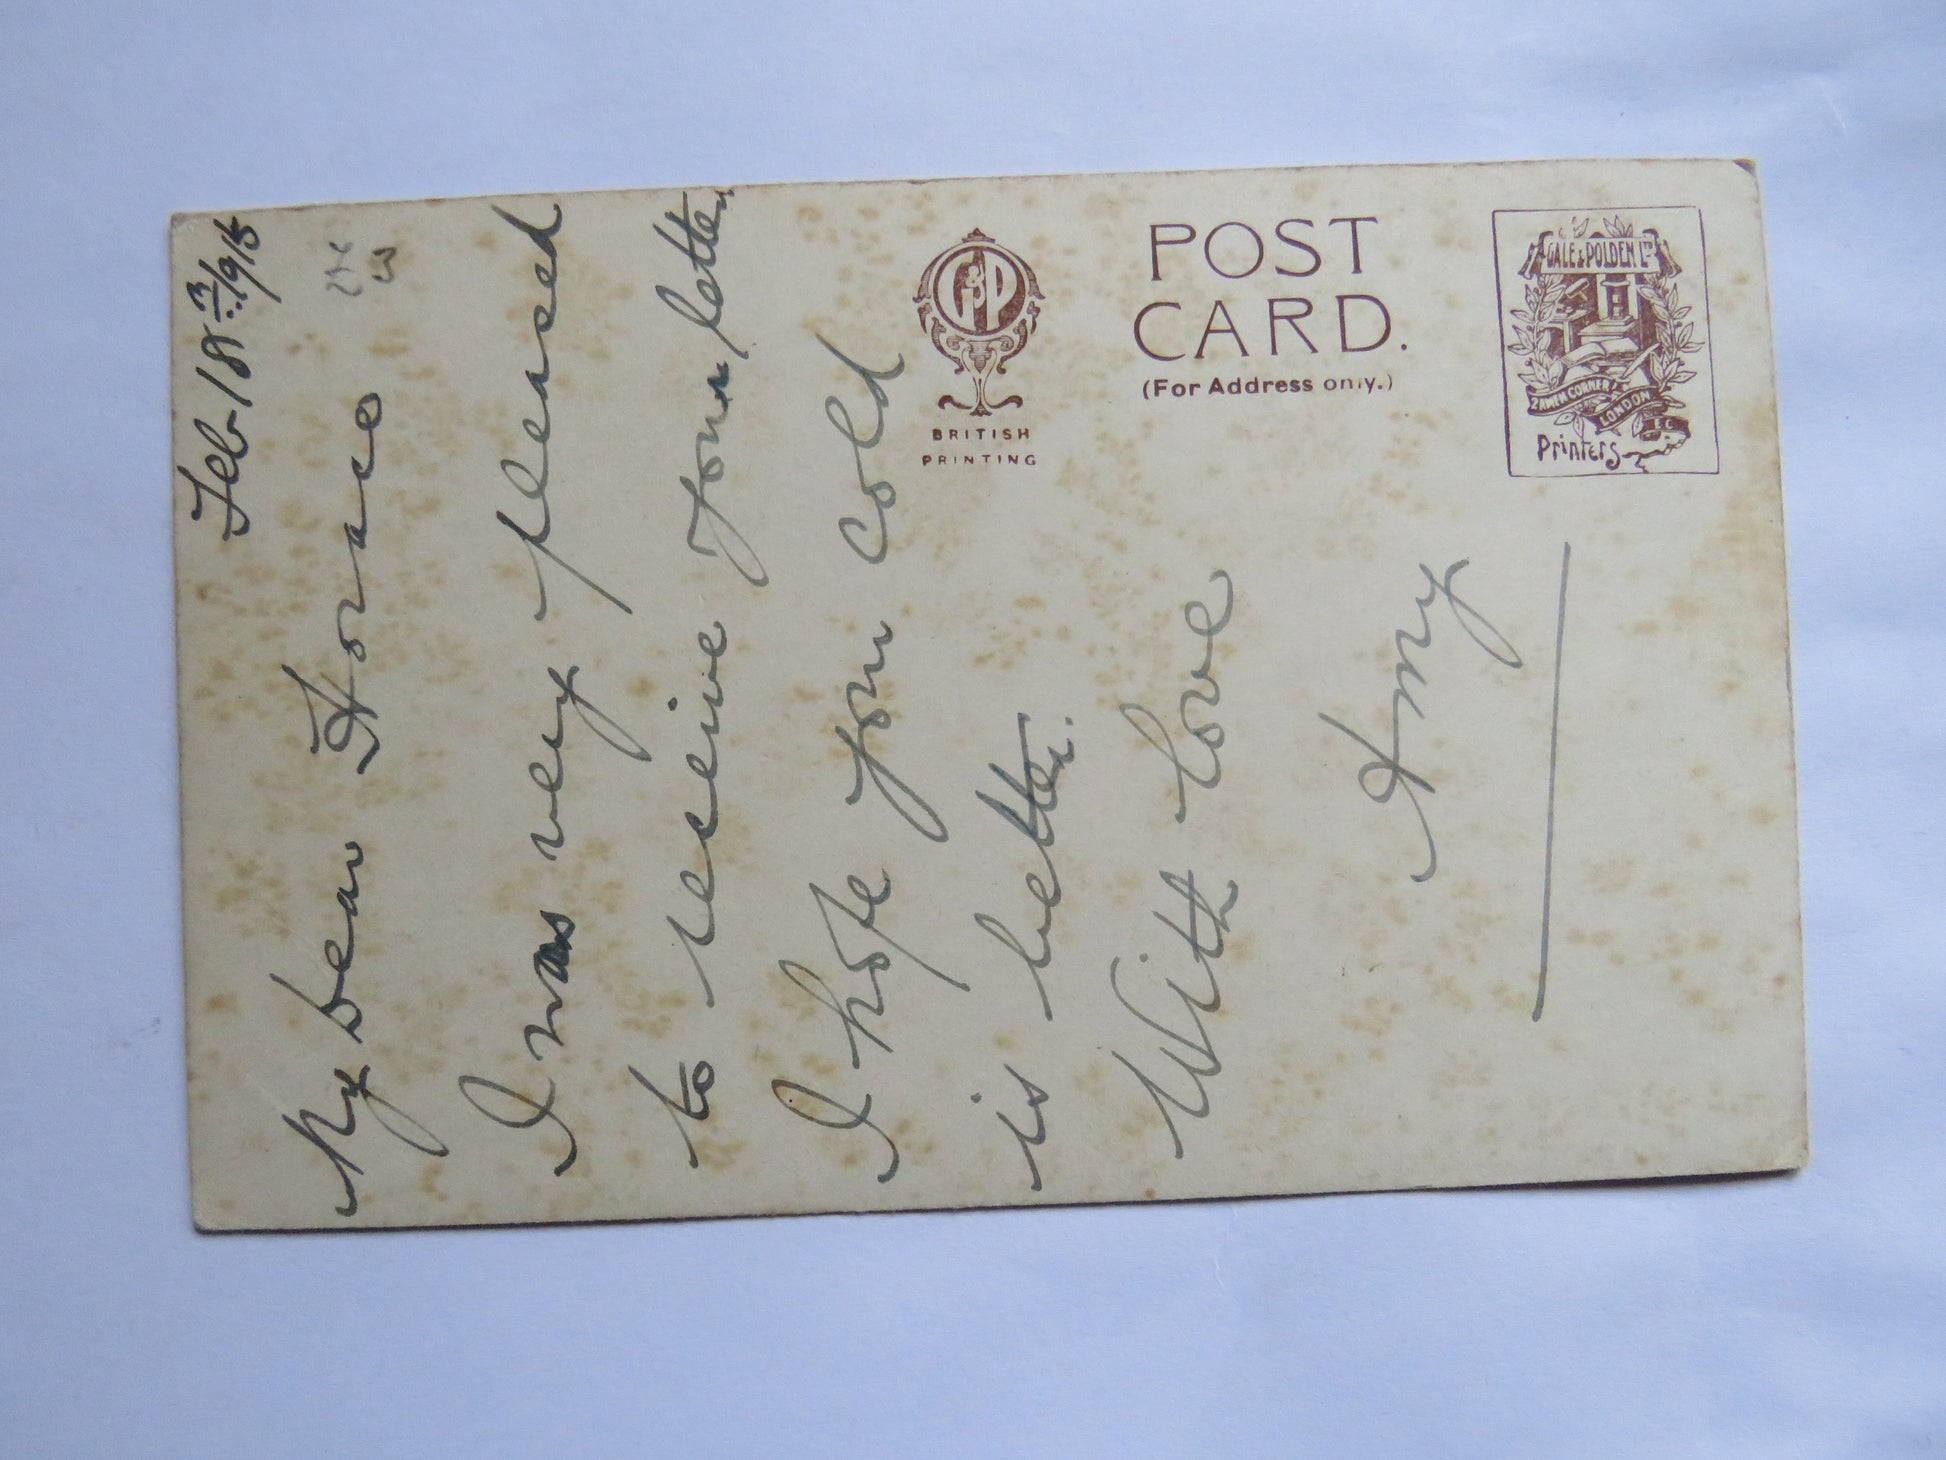 Feb 18th 1915
My dear Horace
I was very pleased
to receive your letter
I hope your cold
is better.
With love
Amy
POST
CARD.
(For Address only.)
G&P
BRITISH
PRINTING
GALE & POLDEN LTD
2 AMEN CORNER
LONDON
E.C.
Printers